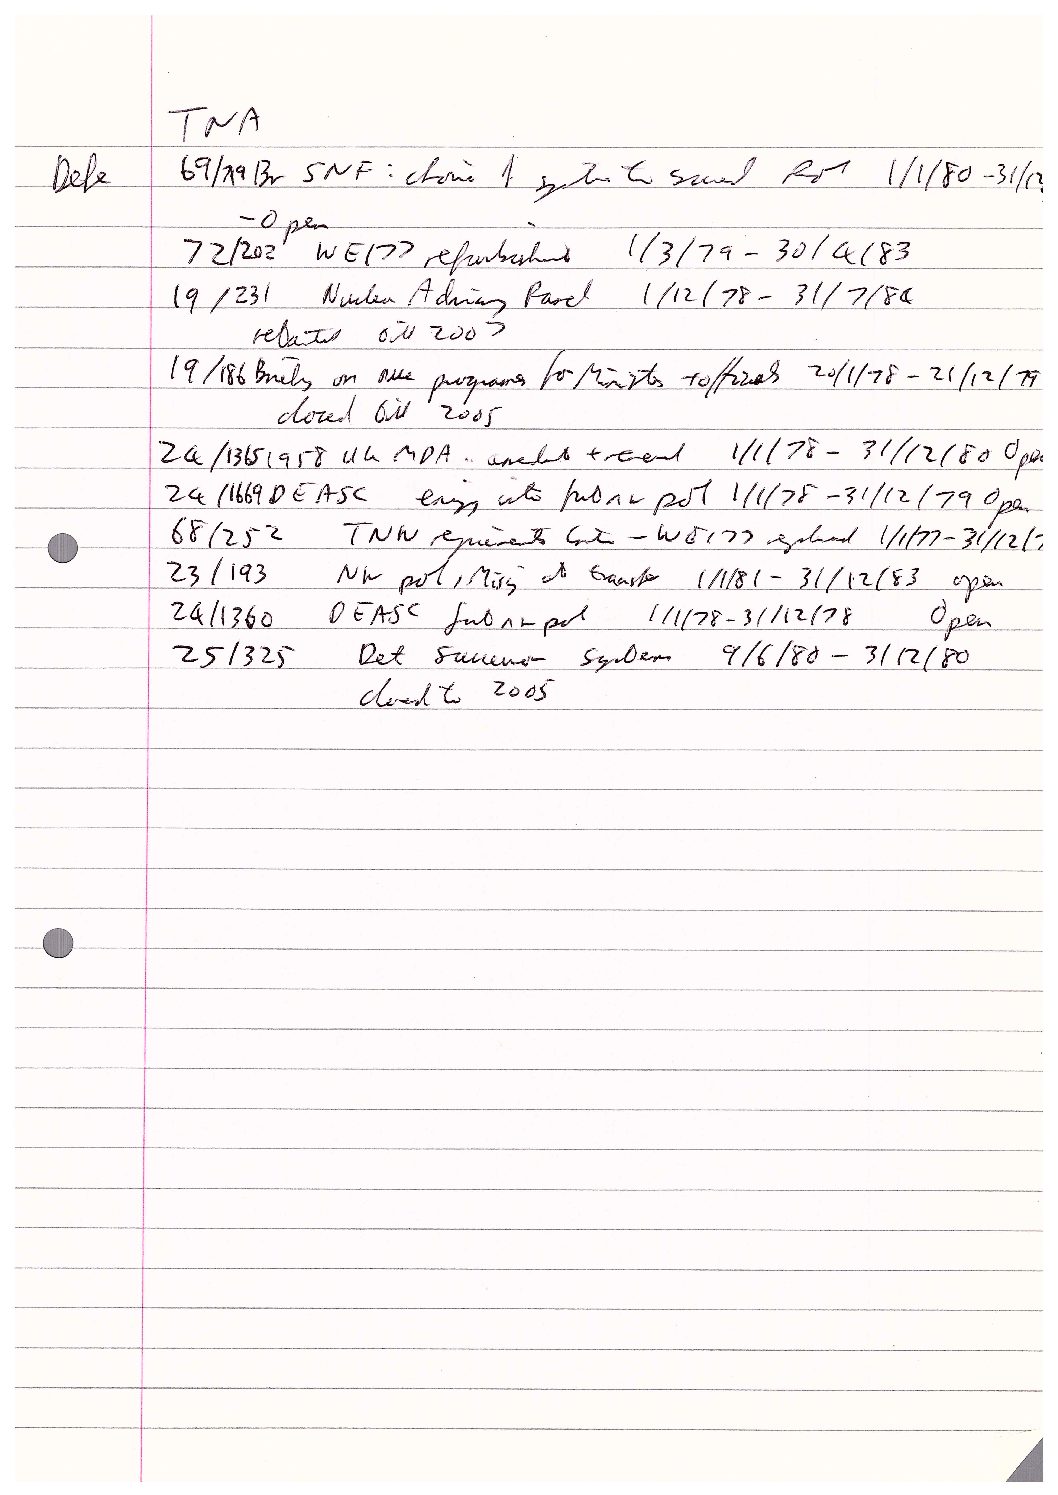 TNA
Defe 69/ Br SNF: choice of system to succeed Pol 1/1/80 - 31/12
- Open
72/202 WE177 refurbishment 1/3/79 - 30/4/83
19/231 Nuclear Advisory Panel 1/12/78 - 31/7/84
retained till 2007
19/186 Briefing on nuc programes for Ministers + officials 20/1/78 - 21/12/79
closed till 2005
24/1365 1958 UK MDA 1/1/78 - 31/12/80 Open
24/1669 DEASC into fut nw pol 1/1/78 - 31/12/79 Open
68/252 TNW requirements - WE177 1/1/77 - 31/12/7
23/193 NW pol, 1/1/81 - 31/12/83 open
24/1360 DEASC fut nw pol 1/1/78 - 31/12/78 Open
25/325 Det successor system 9/6/80 - 31/12/80
closed to 2005